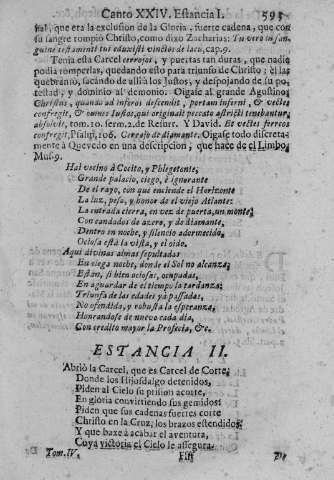 Canto XXIV. Estancia I. 593
ital, que era la exclusion de la Gloria, fuerte cadena, que con
su sangre rompiò Christo, como dixo Zacharias: Tu vero in san-
guine testamenti tui eduxisti vinctos de lacu, cap. 9.
Tenia esta Carcel cerrojos, y puertas tan duras, que nadie
podia romperlas, quedando esto para triunfo de Christo; èl las
quebrantò, sacando de allì à los Justos, y despojando de su po-
testad, y dominio al demonio. Oigase al grande Agustino;
Christus, quando ad inferos descendit, portam inferni, & vectes
confregit, & omnes Justos, qui originali peccato astricti tenebantur,
absolvit, tom. 10. serm. 2. de Resurr. Y David. Et vectes ferreos
confregit, Psalm. 106. Cerrojo de diamante. Oigase todo discreta-
mente à Quevedo en una descripcion, que hace de el Limbo,
Mus. 9.
Hai vecino à Cocito, y Phlegetonte,
Grande palacio, ciego, è ignorante
De el rayo, con que enciende el Horizonte
La luz, peso, y honor de el viejo Atlante:
La entrada cierra, en vez de puerta, un monte,
Con candados de azero, y de diamante,
Dentro en noche, y silencio adormecido,
Ociosa està la vista, y el oìdo.
Aqui divinas almas sepultadas
En ciega noche, donde el Sol no alcanza,
Estàn, si bien ociosas, ocupadas,
En aguardar de el tiempo la tardanza:
Triunfa de las edades yà passadas,
No ofendida, y robusta la esperanza,
Honrandose de nuevo cada dia,
Con credito mayor la Profecia, &c.
ESTANCIA II.
Abriò la Carcel, que es Carcel de Corte,
Donde los Hijosdalgo detenidos,
Piden al Cielo su prision acorte,
En gloria convirtiendo sus gemidos:
Piden que sus cadenas fuertes corte
Christo en la Cruz, los brazos estendidos,
Y que baxe à acabar el aventura,
Cuya victoria el Cielo le assegura.
Tom. IV. Ffff De